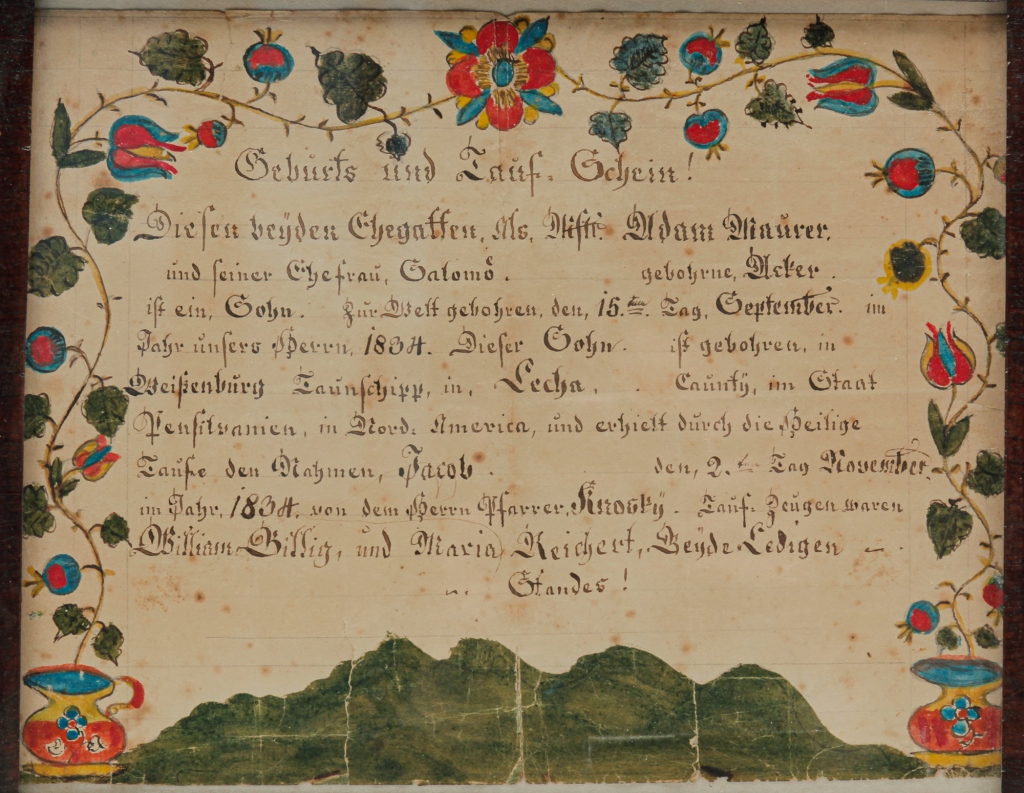 Geburts und Tauf-Schein!
Diesen beyden Ehegatten, Als, Mstr: Adam Maurer.
und seiner Ehefrau, Salomö. gebohrne, Acker.
ist ein, Sohn. Zur Welt gebohren, den, 15.ten Tag, September. im
Jahr unsers Herrn, 1834. Dieser Sohn. ist gebohren, in
Weißenburg Taunschipp, in, Lecha, . Caunty, im Staat
Pensilvanien, in Nord: America, und erhielt durch die Heilige
Taufe den Nahmen, Jacob. den, 2.ten Tag November.
im Jahr, 1834. von dem Herrn Pfarrer, Knosky. Tauf-Zeugen waren
William Billig, und Maria Reichert, Beyde Ledigen
Standes!